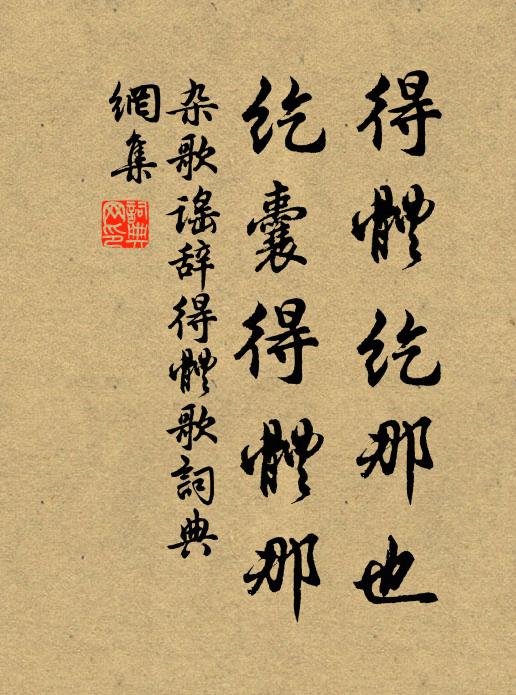 得體紇那也
紇囊得體那
杂歌谣辞得體歌詞典
網集
詞典
网印